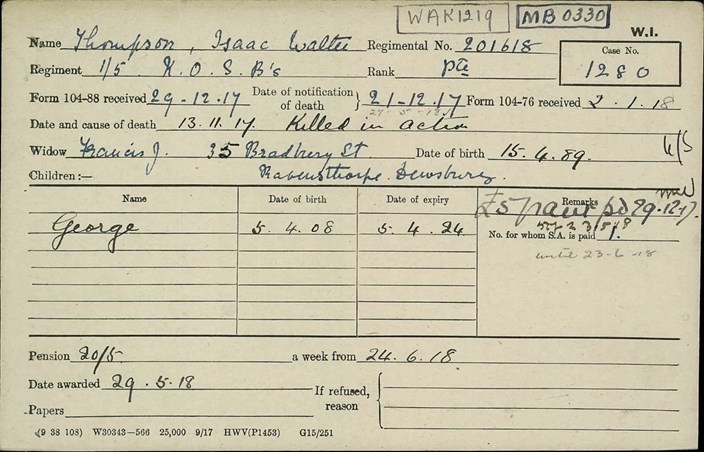 WAK1219 MB 0330
W.I.
Name Thompson, Isaac Walter Regimental No. 201618
Case No. 1280
Regiment 1/5 K.O.S.B's Rank Pte
Form 104-88 received 29-12-17 Date of notification of death } 21-12-17 Form 104-76 received 2.1.18
Date and cause of death 13.11.17. Killed in action
Widow Francis J. 35 Bradbury St. Date of birth 15.4.89.
Children:— Ravensthorpe. Dewsbury.
Name Date of birth Date of expiry Remarks
£5 grant pd 29.12.17.
George 5.4.08 5.4.24
No. for whom S.A. is paid 1.
until 23-6-18
Pension 20/5 a week from 24.6.18
Date awarded 29.5.18
If refused, reason {
Papers
(9 38 108) W30343—566 25,000 9/17 HWV(P1453) G15/251